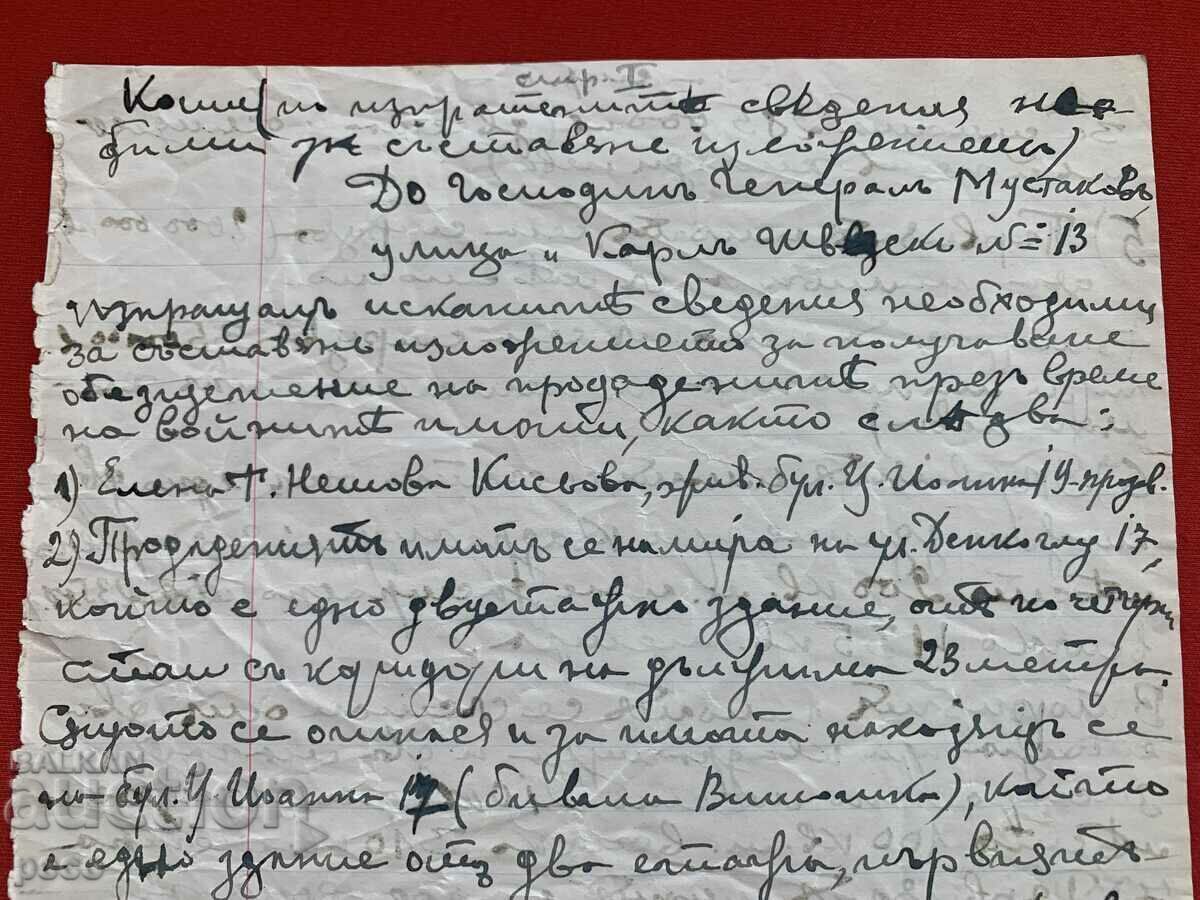 стр. I
Копие (по изпратенитѣ сведения
били за съставяне изложението)
До Господинъ Генералъ Мустаковъ,
улица „ Карлъ Шведски № 13
изпращамъ исканитѣ сведения необходими
за съставянь изложението за получаване
обезщетение на продаденитѣ презъ време
на войнитѣ имоти, както следва:
1) Елена Т. Нешова Кисьова, жив. бул. Ц. Иоанна 19-продав.
2) Продаденитъ имотъ се намира на ул. Денкоглу 17,
който е едно двуетажно здание, отъ по четери
стаи съ коридори на дължина 23 метра.
Сѫщото се отнася и за имота находящъ се
на бул. Ц. Иоанна 17 (бивала Витошка), който
е едно здание отъ два етажа, първиятъ
BALKAN
auction